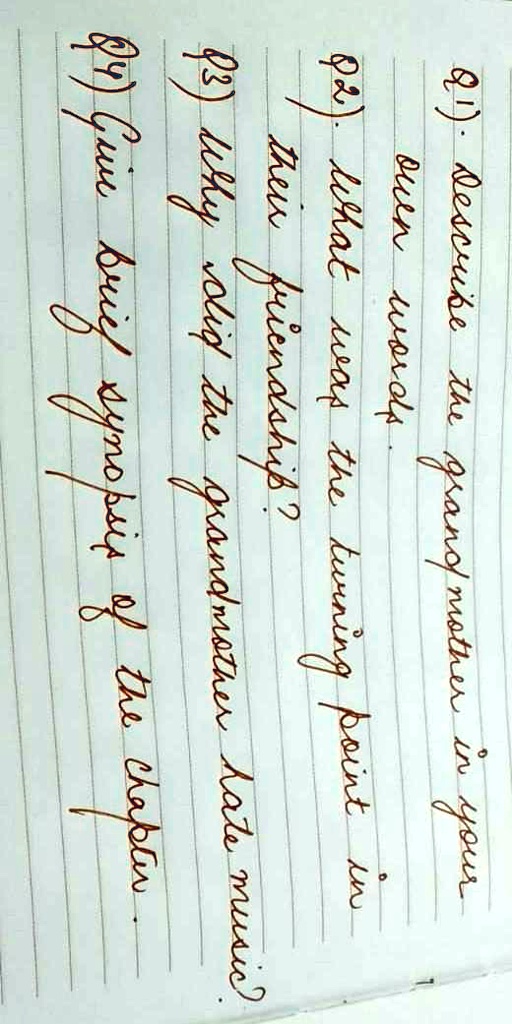 Q1). Describe the grandmother in your
own words.
Q2). What was the turning point in
their friendship?
Q3) Why did the grandmother hate music?
Q4) Give brief synopsis of the chapter.